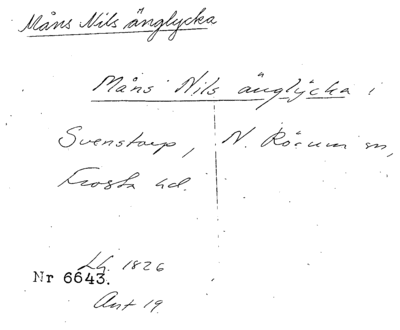 Måns Nils änglycka
Måns Nils änglycka i
Svenstorp, N. Rörum sn,
Frosta hd.
Lh. 1826
Nr 6643.
Ant 19.